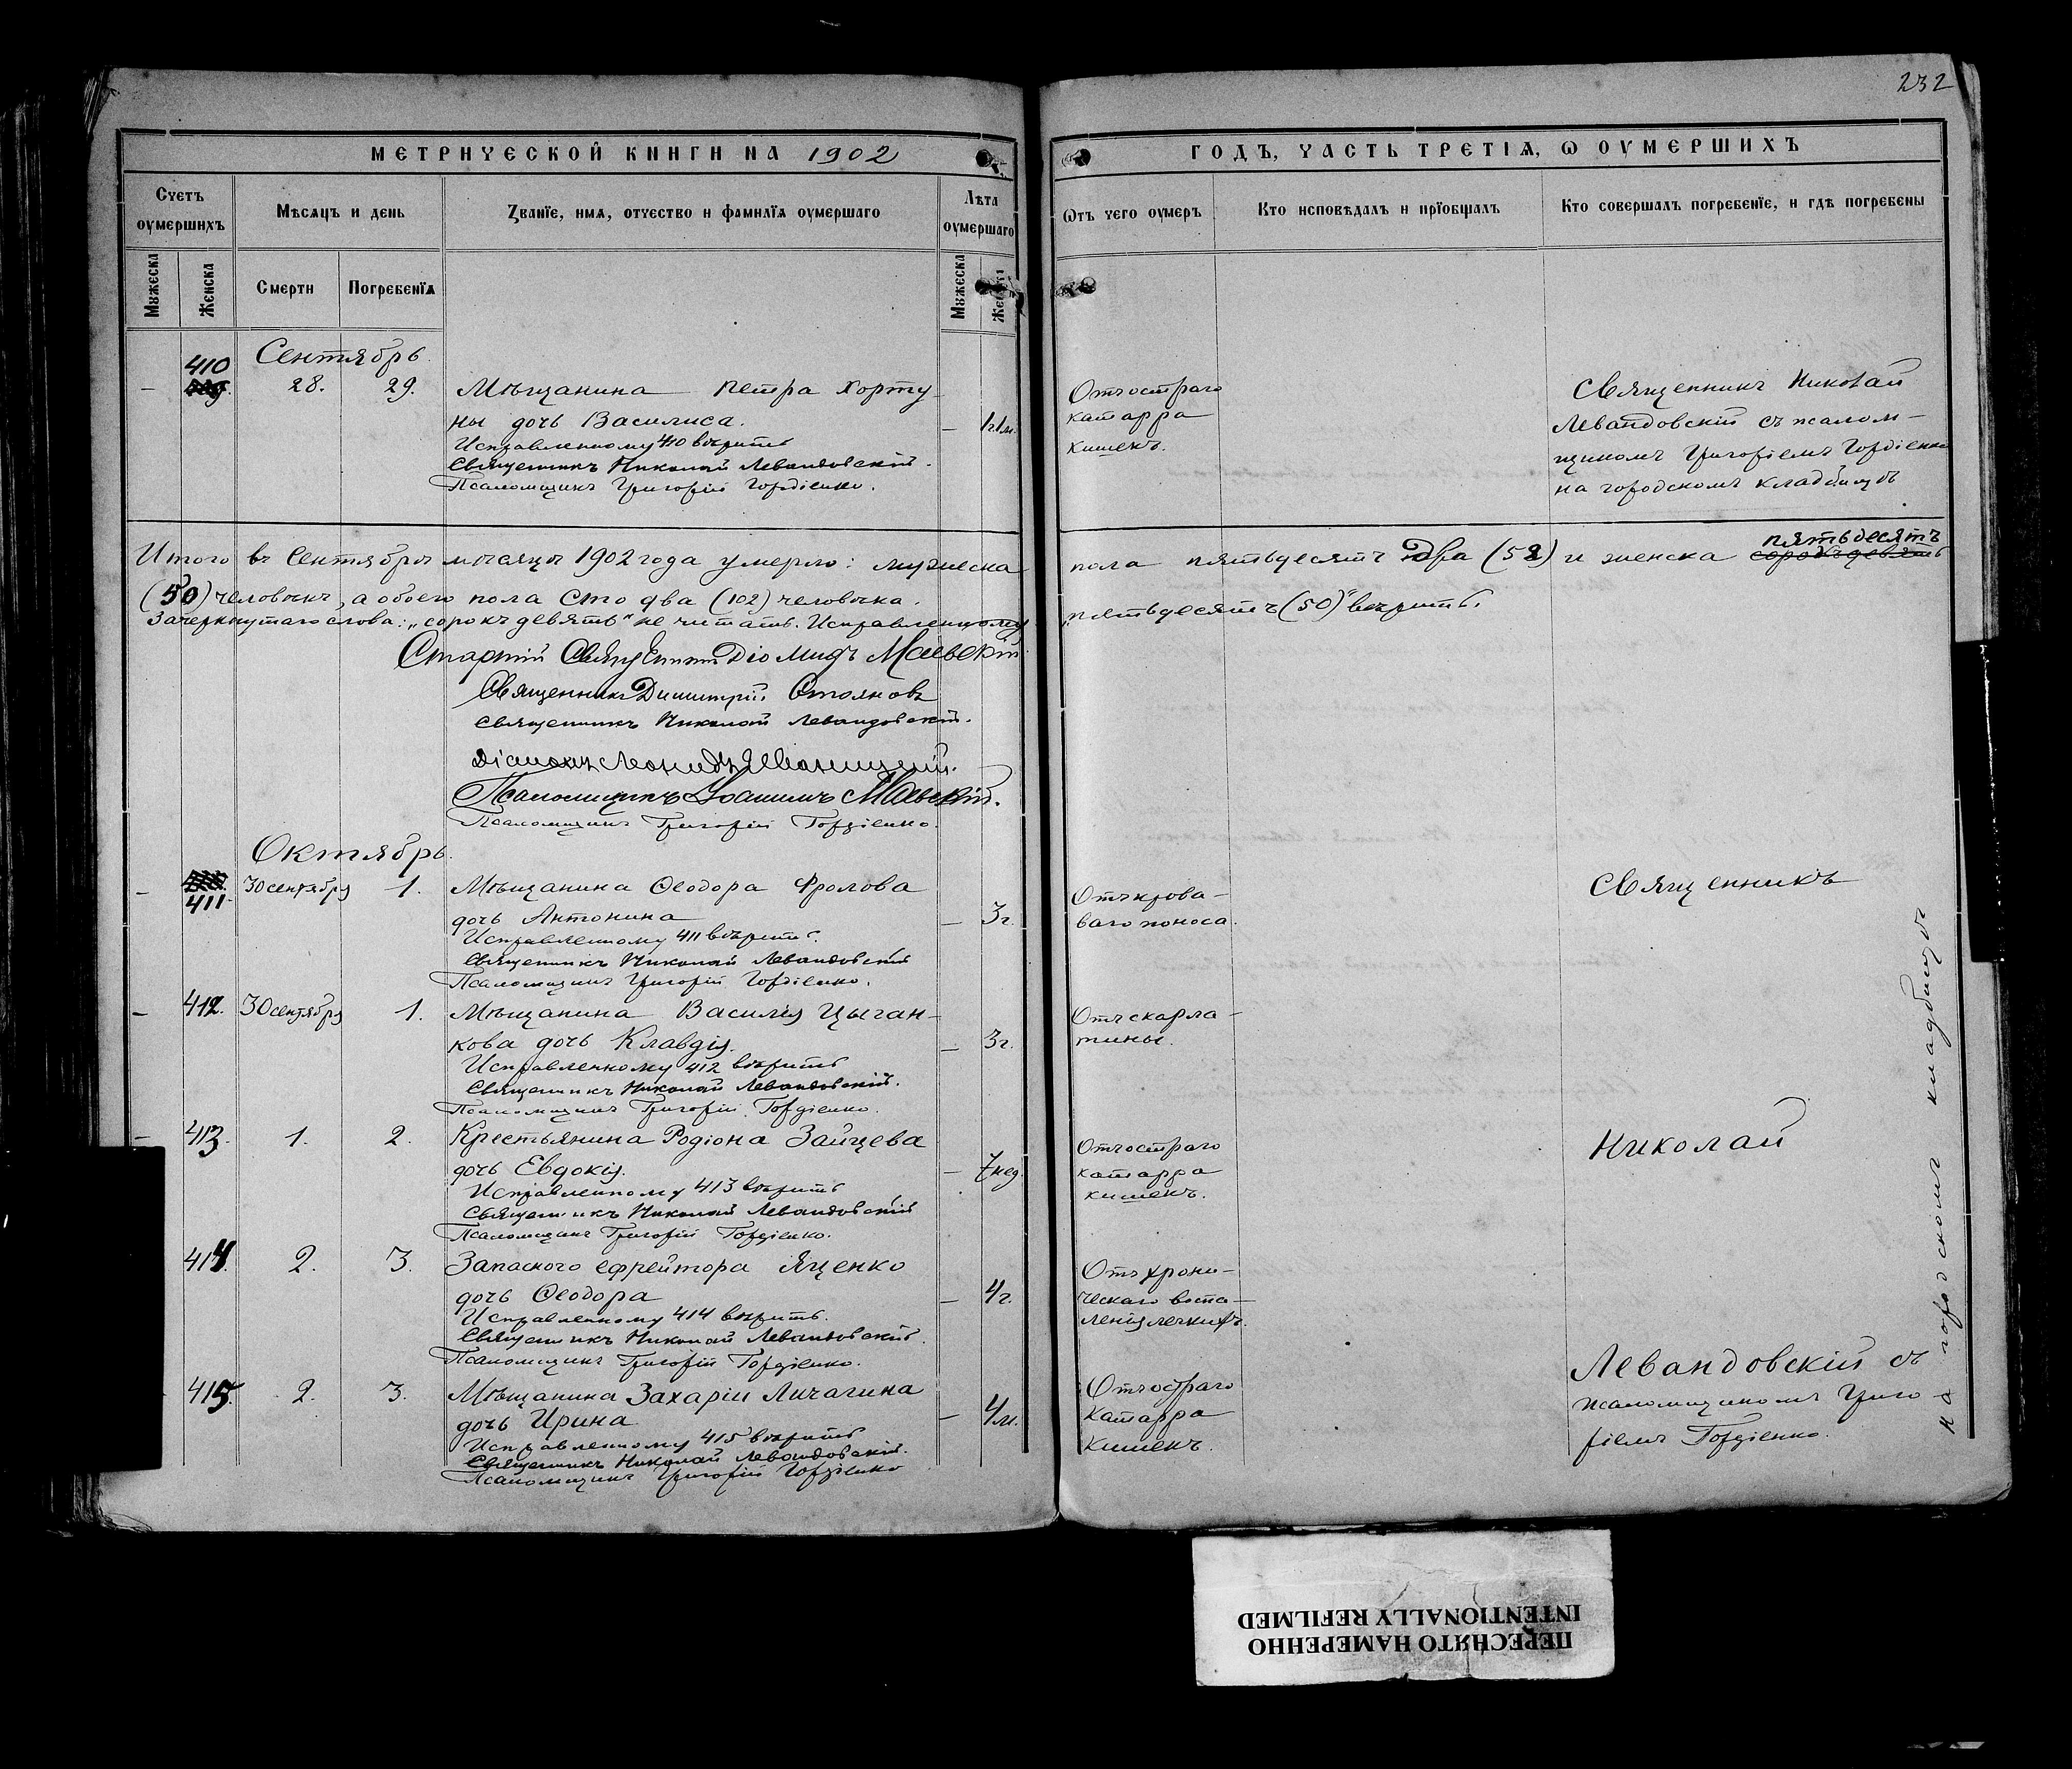 232
МЕТРИЧЕСКОЙ КНИГИ НА 1902
ГОДЪ, ЧАСТЬ ТРЕТІЯ, Ѡ ОУМЕРШИХЪ
Счетъ оумершихъ
Мѣсяцъ и день
Званїе, имя, отчество и фамилїя оумершаго
Лѣта оумершаго
Ѿтъ чего оумеръ
Кто исповѣдалъ и прїобщалъ
Кто совершалъ погребенїе, и гдѣ погребены
Мужеска
Женска
Смерти
Погребенїя
Мужеска
Женска
Сентябрь
410
28. 29. Мѣщанина Петра Хорту-
ны дочь Василиса. 1г.1м.
Исправленному 410 вѣрить
Священникъ Николай Левандовскій.
Псаломщикъ Григорій Гордіенко.
Отъ остраго
катарра
кишекъ.
Священникъ Николай
Левандовскій съ псалом-
щикомъ Григоріемъ Гордіенко
на городскомъ кладбищѣ
Итого въ Сентябрѣ мѣсяцѣ 1902 года умерло: мужеска пола пятьдесятъ два (52) и женска сорокъ девять
пятьдесятъ
(50) человѣкъ, а обоего пола сто два (102) человѣка.
Зачеркнутаго слова: „сорокъ девять" не читать. Исправленному
„пятьдесятъ (50)" вѣрить.
Старшій Священникъ Діомидъ Маевскій
Священникъ Димитрій Стояновъ
Священникъ Николай Левандовскій.
Діаконъ Леонидъ
Псаломщикъ Іоакимъ Маевскій.
Псаломщикъ Григорій Гордіенко.
Октябрь.
411. 30 сентября 1. Мѣщанина Ѳеодора Фролова
дочь Антонина 3г.
Исправленному 411 вѣрить.
Священникъ Николай Левандовскій
Псаломщикъ Григорій Гордіенко.
Отъ крова-
ваго поноса.
Священникъ
412. 30 сентября 1. Мѣщанина Василія Цыган-
кова дочь Клавдія. 3г.
Исправленному 412 вѣрить
Священникъ Николай Левандовскій.
Псаломщикъ Григорій Гордіенко.
Отъ скарла-
тины.
413. 1. 2. Крестьянина Родіона Зайцева
дочь Евдокія. 7нед.
Исправленному 413 вѣрить
Священникъ Николай Левандовскій
Псаломщикъ Григорій Гордіенко.
Отъ остраго
катарра
кишекъ.
Николай
414. 2. 3. Запаснаго ефрейтора Яценко
дочь Ѳеодора 4г.
Исправленному 414 вѣрить.
Священникъ Николай Левандовскій.
Псаломщикъ Григорій Гордіенко.
Отъ хрони-
ческаго воспа-
ленія легкихъ.
415. 2. 3. Мѣщанина Захаріи Личагина
дочь Ирина 4м.
Исправленному 415 вѣрить
Священникъ Николай Левандовскій.
Псаломщикъ Григорій Гордіенко
Отъ остраго
катарра
кишекъ.
Левандовскій съ
псаломщикомъ Григо-
ріемъ Гордіенко.
на городскомъ кладбищѣ
ПЕРЕСНЯТО НАМЕРЕННО
INTENTIONALLY REFILMED